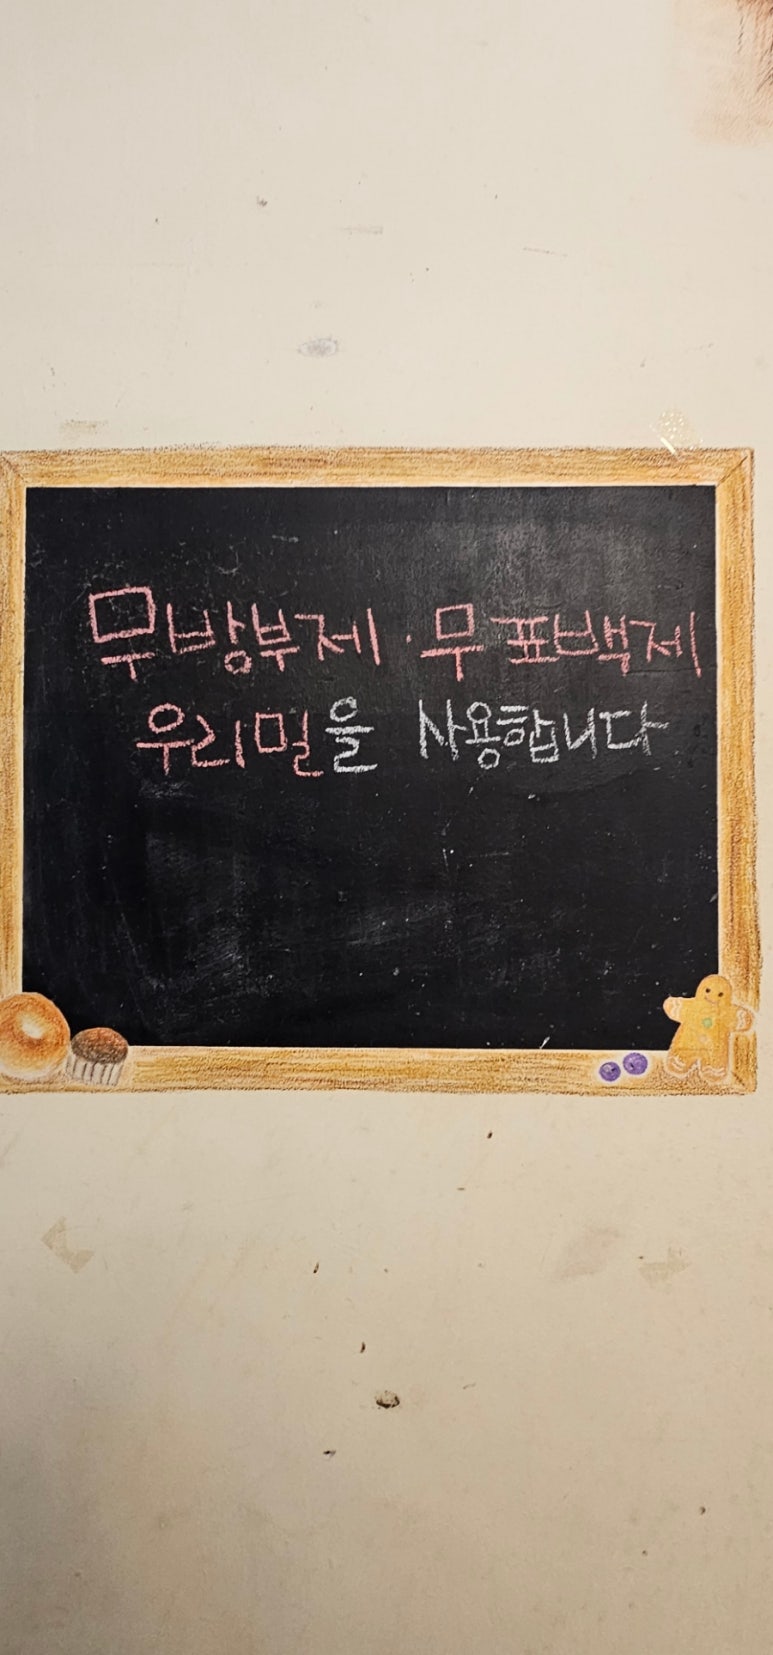 무방부제·무표백제
우리밀을 사용합니다